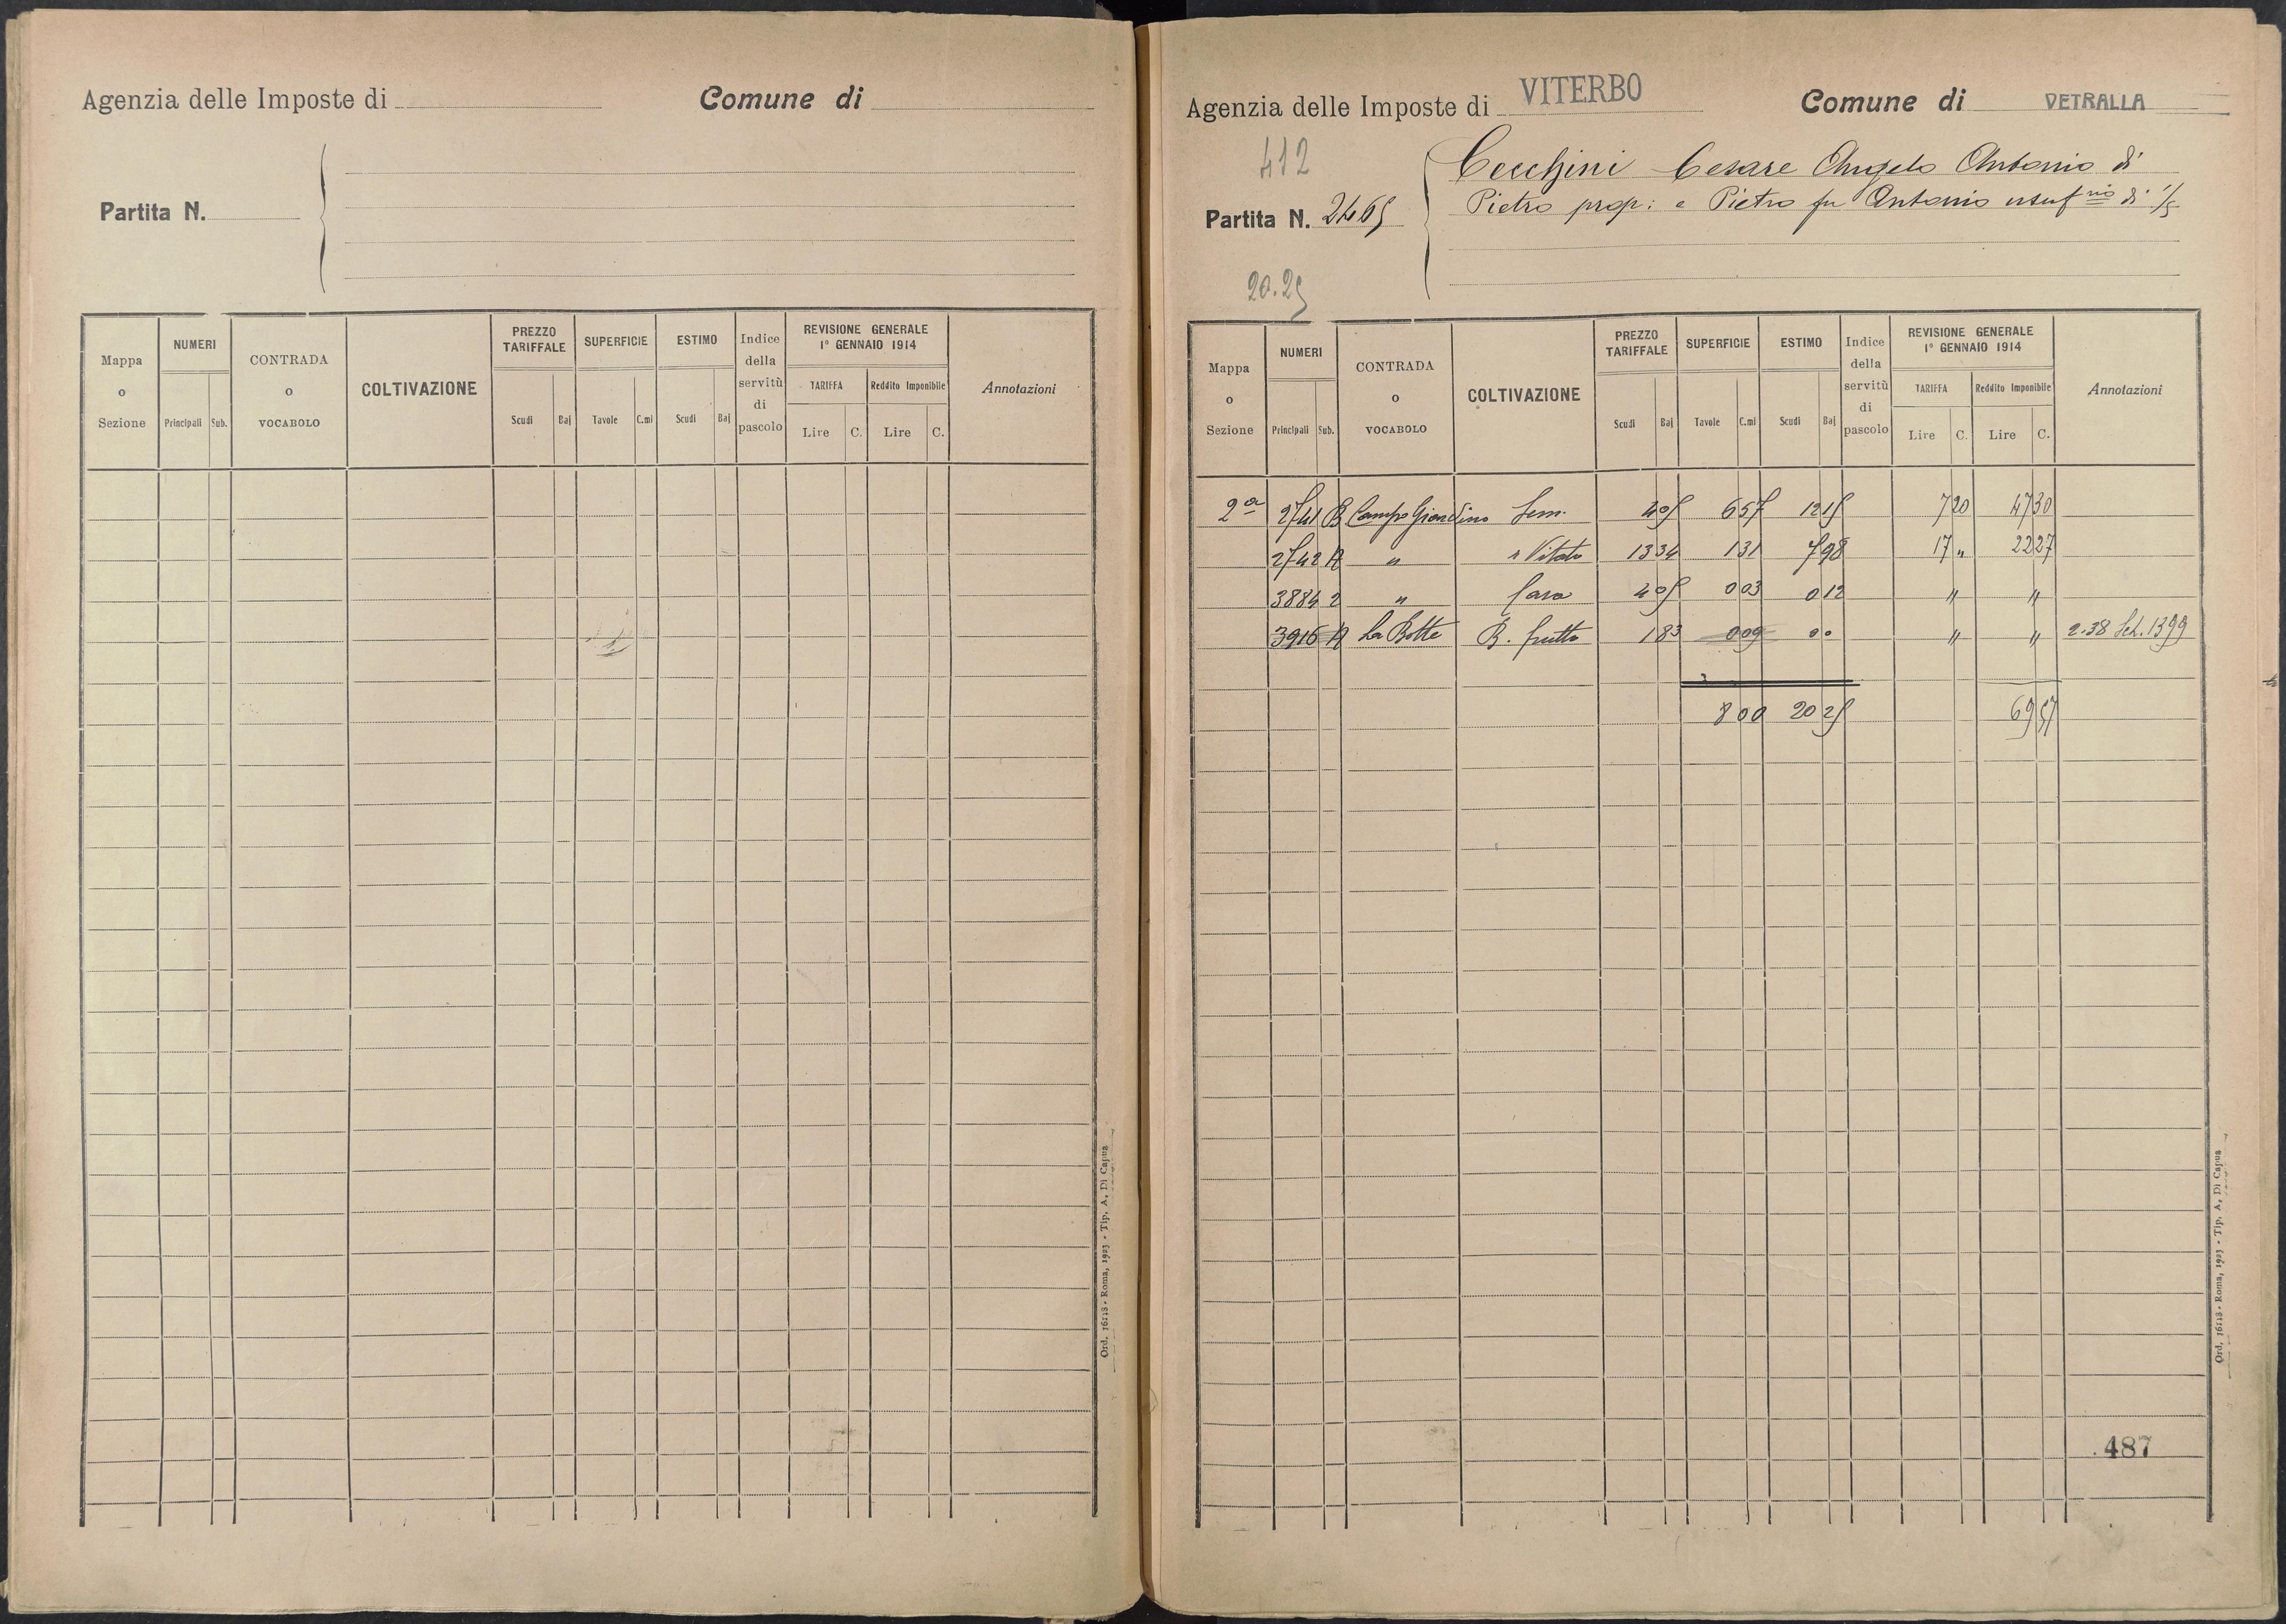 Agenzia delle Imposte di
Comune di
Partita N.
Mappa o Sezione | NUMERI Principali Sub. | CONTRADA o VOCABOLO | COLTIVAZIONE | PREZZO TARIFFALE Scudi Baj | SUPERFICIE Tavole C.mi | ESTIMO Scudi Baj | Indice della servitù di pascolo | REVISIONE GENERALE 1° GENNAIO 1914 TARIFFA Lire C. Reddito Imponibile Lire C. | Annotazioni
Ord. 16118 - Roma, 1923 - Tip. A. Di Capua
Agenzia delle Imposte di VITERBO
Comune di VETRALLA
412
Cecchini Cesare Angelo Antonio di
Partita N. 2465
Pietro prop: e Pietro fu Antonio usufrio di 1/5
20.25
Mappa o Sezione | NUMERI Principali Sub. | CONTRADA o VOCABOLO | COLTIVAZIONE | PREZZO TARIFFALE Scudi Baj | SUPERFICIE Tavole C.mi | ESTIMO Scudi Baj | Indice della servitù di pascolo | REVISIONE GENERALE 1° GENNAIO 1914 TARIFFA Lire C. Reddito Imponibile Lire C. | Annotazioni
2a | 2741 | B | Campo Giardino | Sem. | 1 | 6 57 | 12 15 | 7 20 | 47 30
2742 | A | " | " Vitato | 13 34 | 1 31 | 7 98 | 17 " | 22 27
3884 | 2 | " | Casa | 0 03 | 0 12 | " | "
3916 | A | La Botte | B. frutto | 1 83 | 0 09 | 0 0 | " | " | 2.38 Sch. 1399
8 00 | 20 25 | 69 57
487
Ord. 16118 - Roma, 1923 - Tip. A. Di Capua